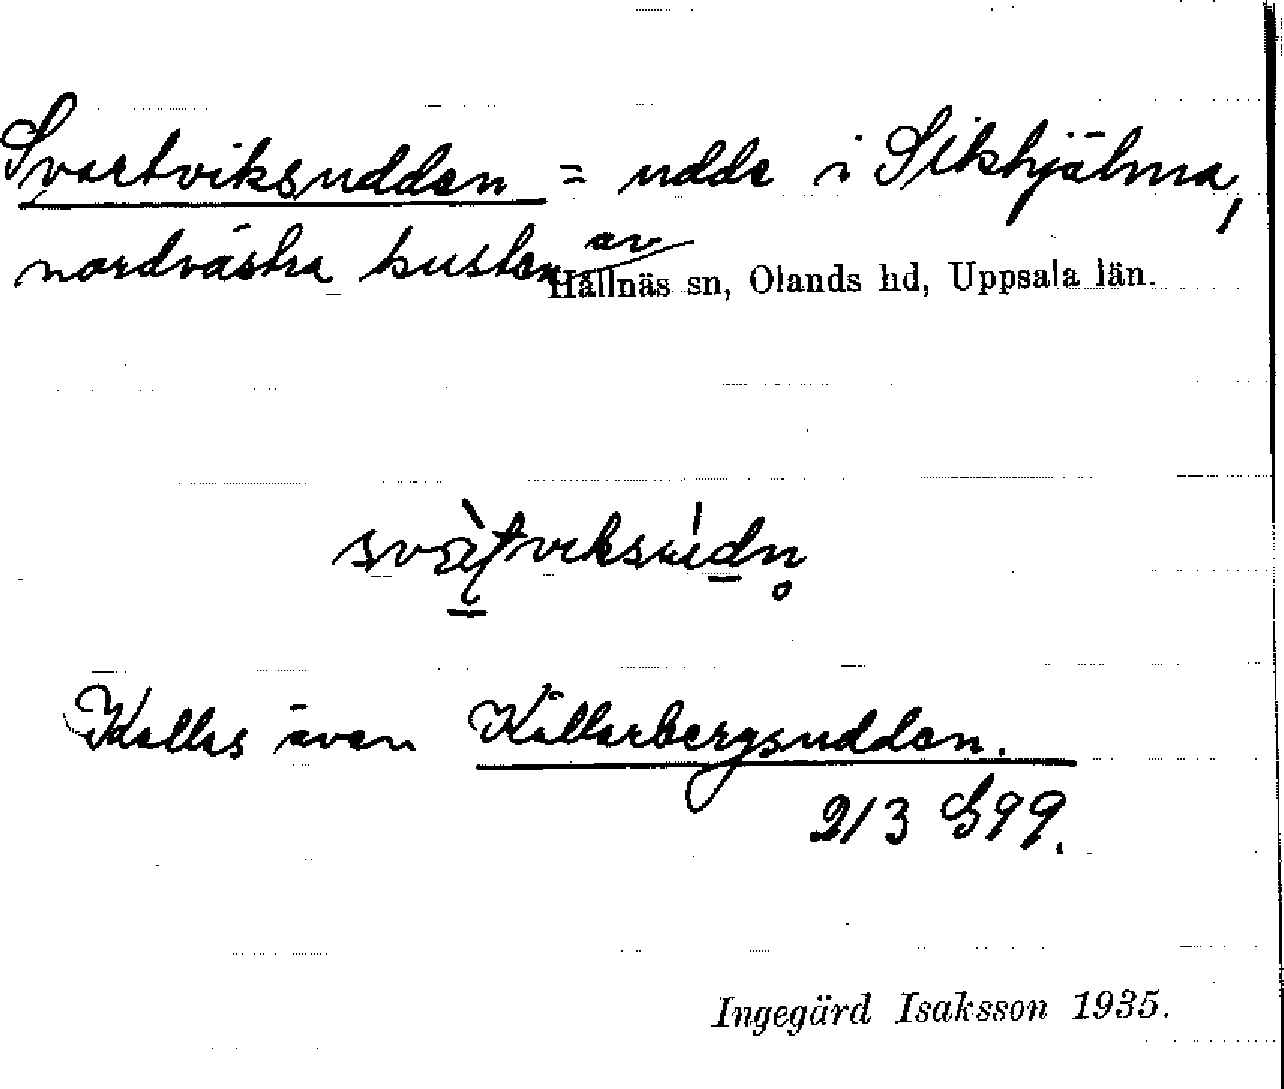 Svartviksudden = udde i Sikhjälma,
nordvästra kusten av
Hållnäs sn, Olands hd, Uppsala län.
Kallas även Källarbergsudden.
213 G99.
Ingegärd Isaksson 1935.